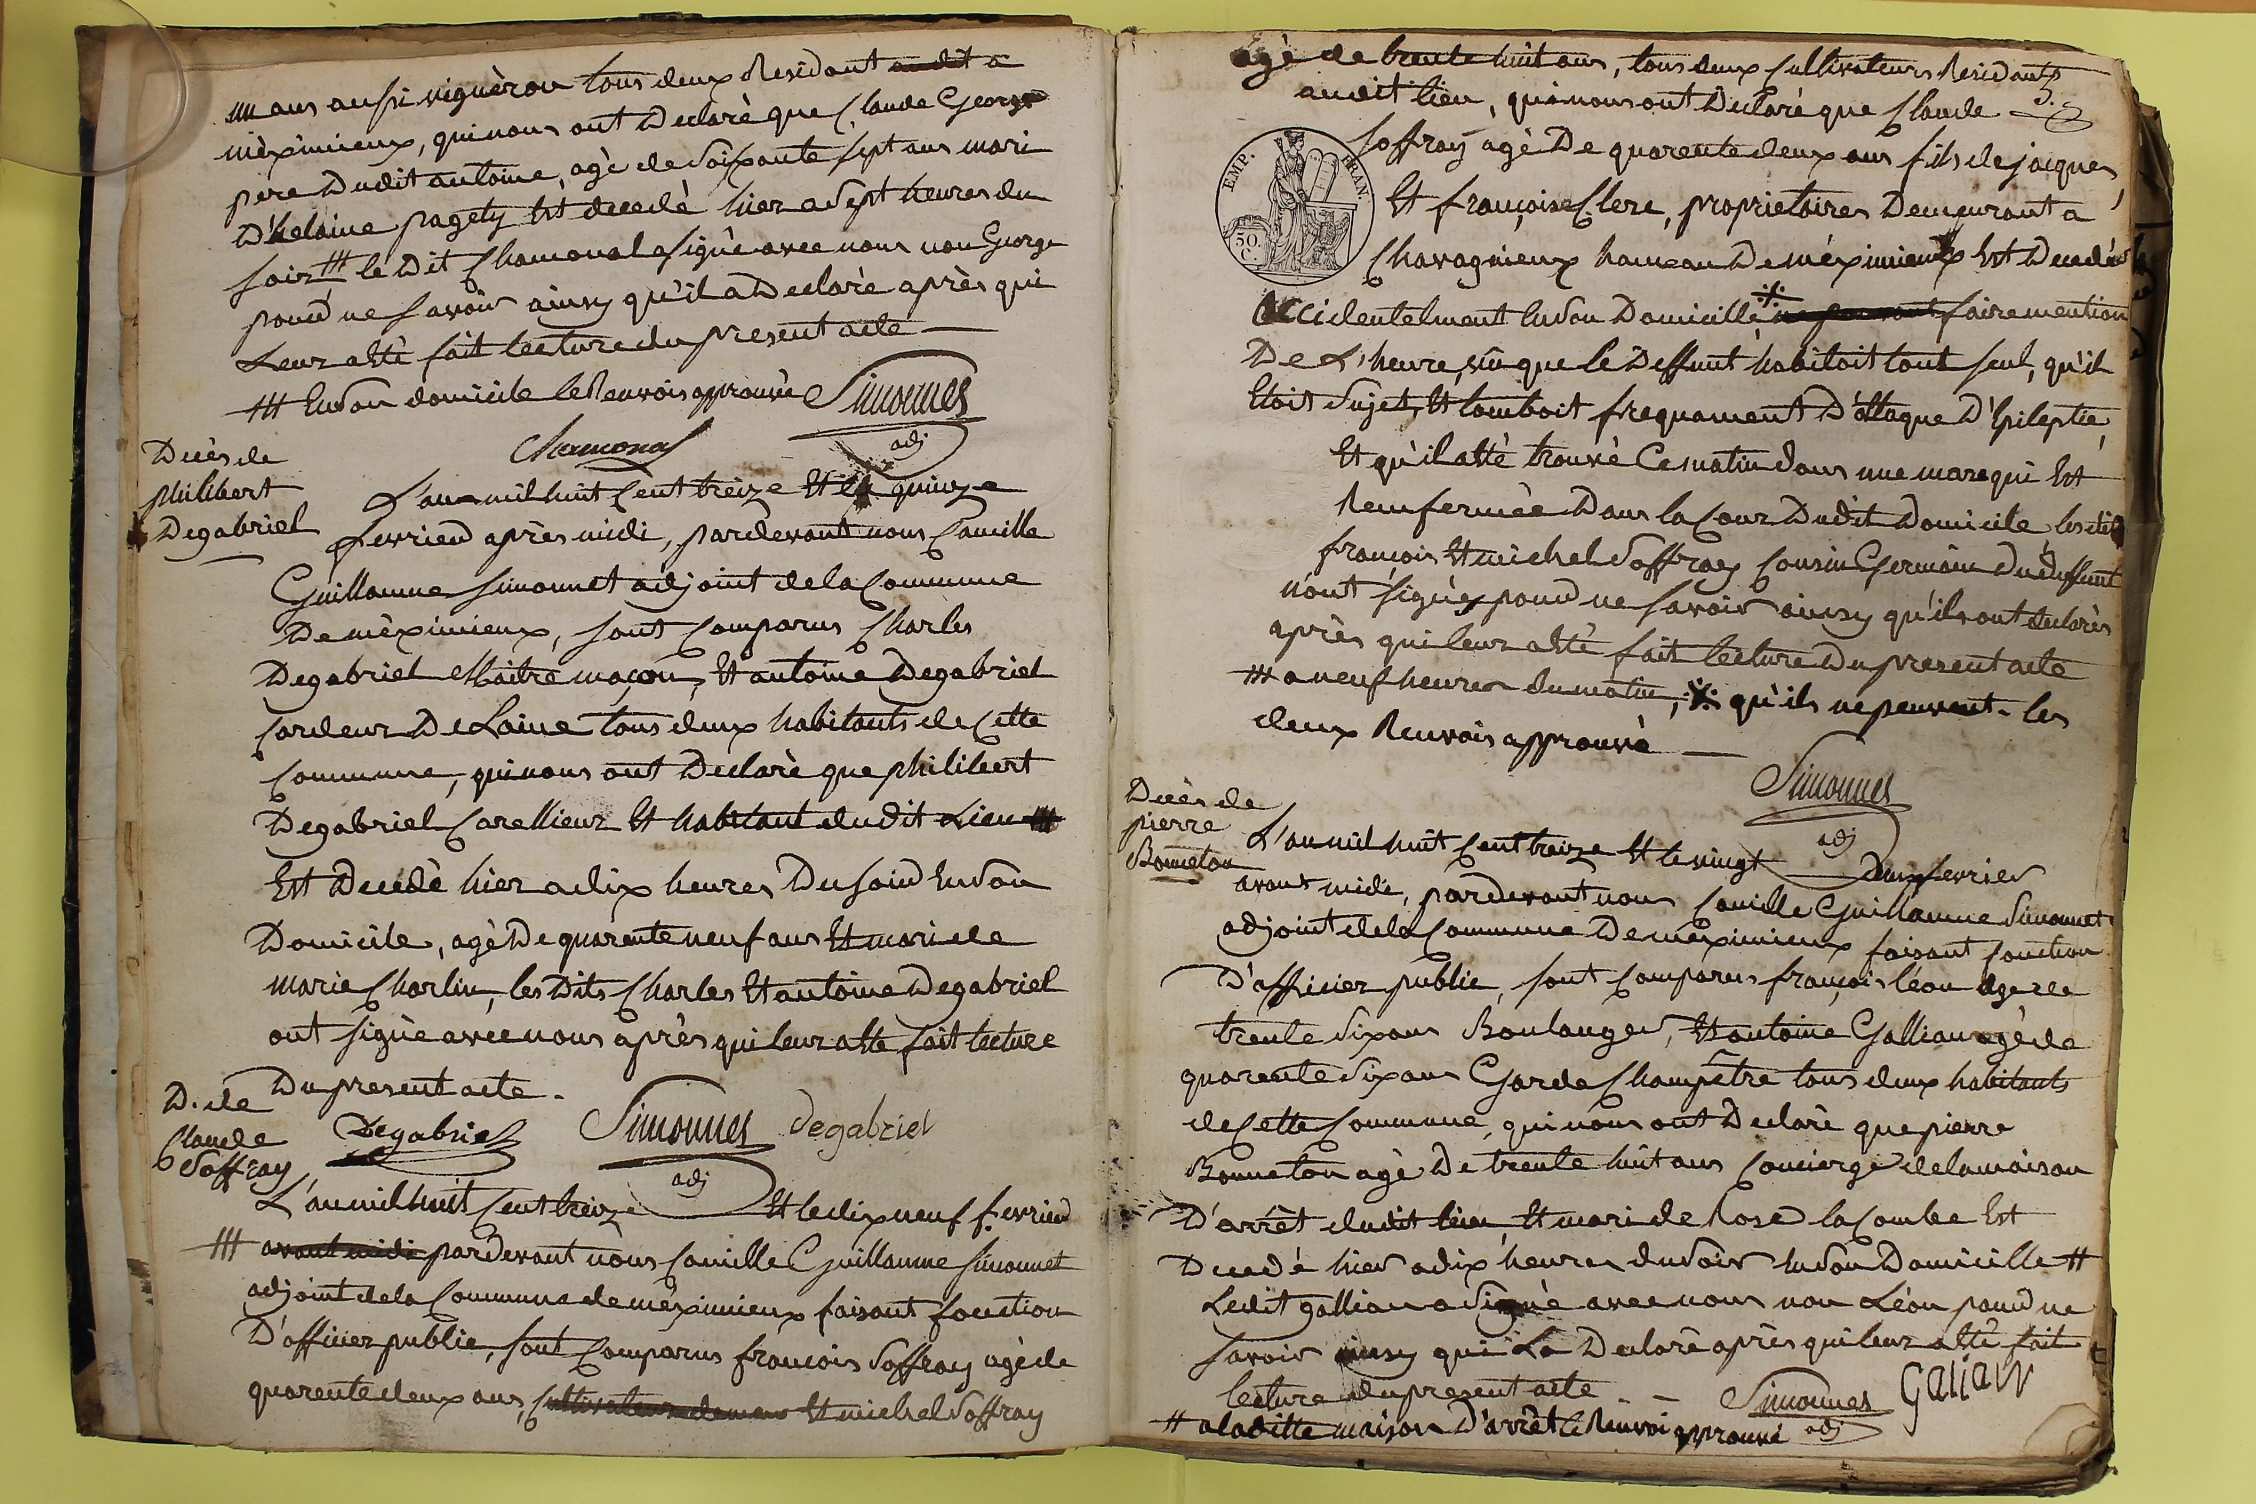 un ans aussi vignèron tous deux Residant au dit a
mèximieux, qui nous ont Declarè que Claude George
pere Dudit antoine, agè de Soixante sept ans mari
D'helaine pagety Est decedè hier a Sept heures du
soir ⧻ le Dit Chamonal a signè avec nous non George
pour ne savoir ainsy qu'il a Declarè après qui
Leur attè fait lecture du present acte —
⧻ En Son domicile le Renvois approuvè Simonnet
adj
Chamonal
Décès de
philibert
Degabriel
L'an mil huit Cent treize Et le quinze
fevrier après midi, pardevant nous Camille
Guillaume Simonnet adjoint de la Commune
De mèximieux, sont Comparus Charles
Degabriel Maitre maçon, Et antoine Degabriel
Cardeur De Laine tous deux habitants de Cette
Commune, qui nous ont Declarè que philibert
Degabriel Carellieur Et habitant dudit Lieu
Est Decedè hier a dix heures Du soir En Son
Domicile, agè De quarente neuf ans Et mari de
marie Charlin, les Dits Charles Et antoine Degabriel
ont signè avec nous après qui leur atte fait lecture
Du present acte.
Degabriel Simonnet degabriel
adj
D. de
Claude
Soffray
L'an mil huit Cent treize Et le dix neuf fevrier
⧻ avant midi pardevant nous Camille Guillaume Simonnet
adjoint de la Commune de mèximieux faisant fonction
D'officier public, sont Comparus françois Soffray agè de
quarente deux ans, Cultivateur Et michel Soffray
agè de trente huit ans, tous deux Cultivateurs Residants
audit lieu, qui nous ont Declarè que Claude
3.
Soffray agè De quarente deux ans fils de jacques
EMP. FRAN.
50.
C.
Et françoise Clerc, proprietaires Demeurant a
Chavagnieux hameau De mèximieux Est Decedè
accidentelment En Son Domicille ⁜ ne pouvant faire mention
De L'heure, vû que le Deffunt habitoit tout seul, qu'il
Etoit Sujet, Et tomboit frequament D'attaque D'Epileptie,
Et qu'il attè trouvè Ce matin dans une mare qui Est
Renfermèe Dans la Cour Dudit Domicile, les dits
françois Et michel Soffray Cousin Germain du deffunt
n'ont signès pour ne savoir ainsy qu'ils ont declarès
après qui leur attè fait lecture Du present acte
⧻ a neuf heures du matin, ⁜ qu'ils ne peuvent. les
deux Renvois approuvè —
Simonnet
adj
Décès de
pierre
Bonneton
L'an mil huit Cent treize Et le vingt deux fevrier
avant midi, pardevant nous Camille Guillaume Simonnet
adjoint de la Commune De mèximieux faisant fonction
D'officier public, sont Comparus françois léon agè de
trente Six ans Boulanger, Et antoine Gallian agè de
quarente Six ans Garde Champêtre tous deux habitants
de Cette Commune, qui nous ont Declarè que pierre
Bonneton agè De trente huit ans Concierge de la maison
D'arrêt dudit lieu, Et mari de Rose laCombe Est
Decedè hier a dix heures du Soir En Son Domicille #
Ledit gallian a Signè avec nous non Léon pour ne
savoir ainsy qui La Declarè après qui leur attè fait
lecture du present acte. — Simonnet Galian
adj
# a la ditte maison D'arrêt le Renvoi approuvè